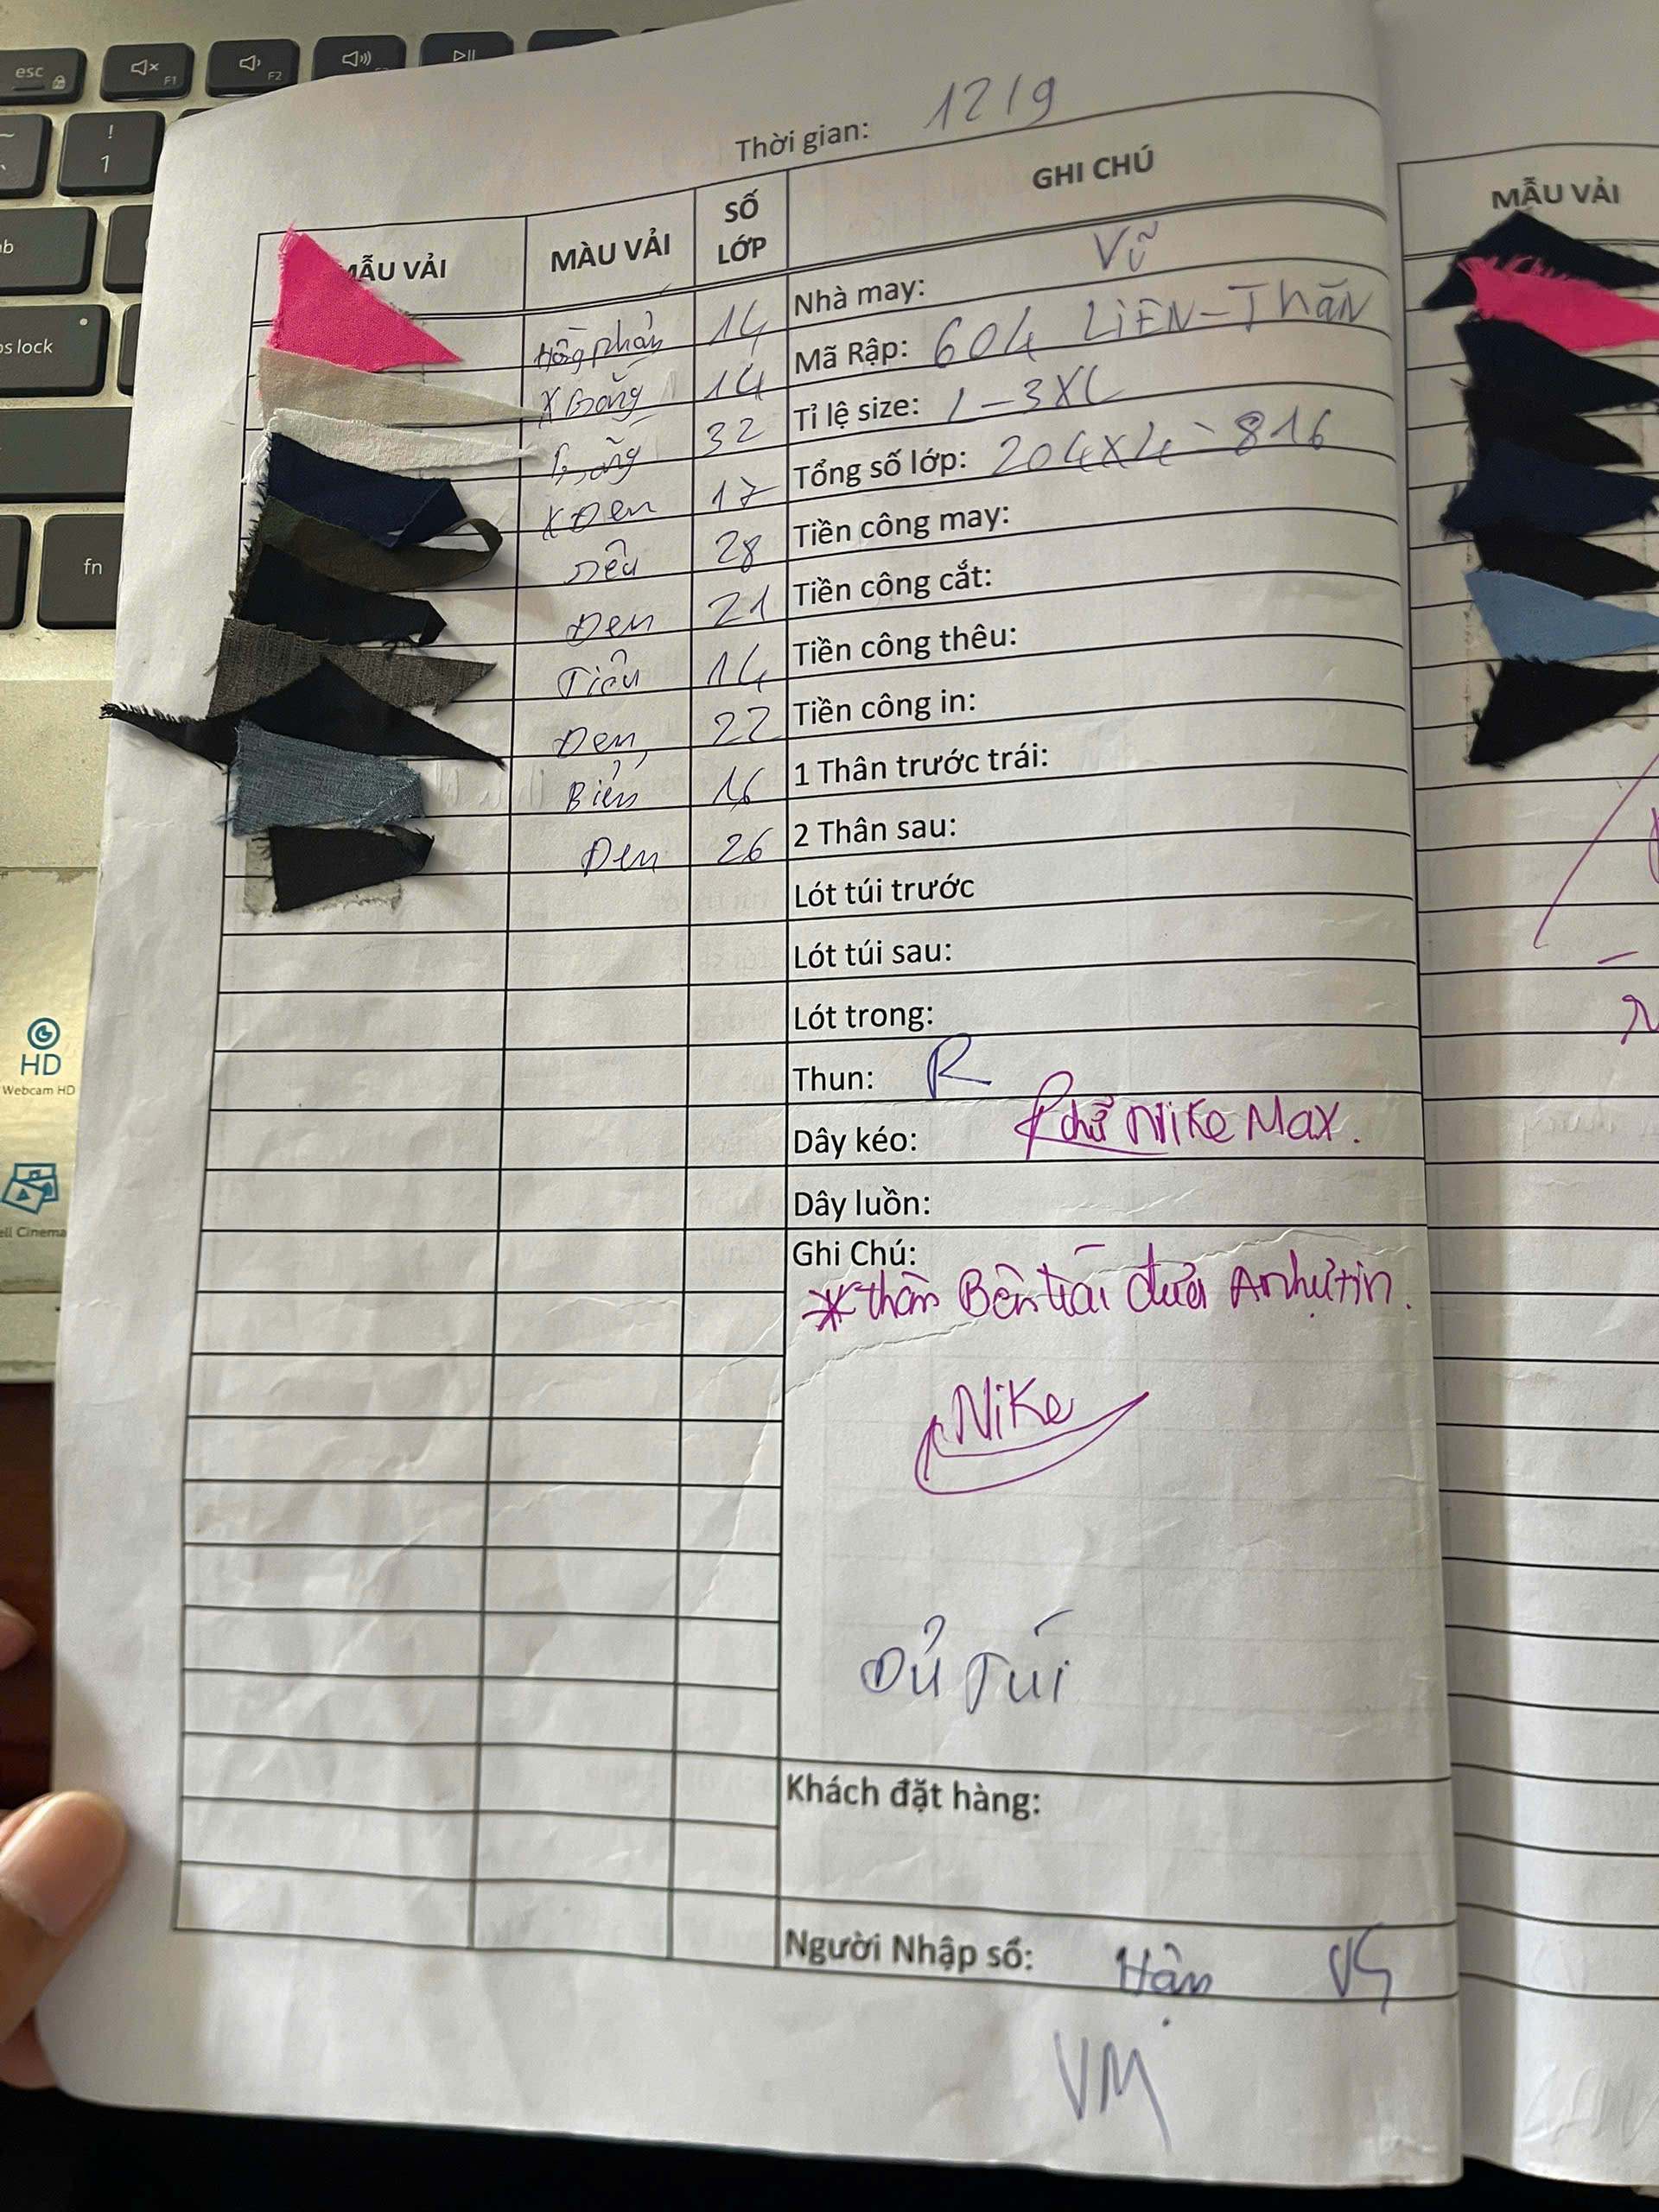 esc
F1
F2
!
1
fn
HD
Webcam HD
Thời gian: 12/9
MẪU VẢI
MÀU VẢI
SỐ LỚP
GHI CHÚ
14
X Trắng 14
Trắng 32
X Đen 17
Rêu 28
Đen 21
Tiêu 14
Đen 22
Biển 16
Đen 26
Nhà may: Vũ
Mã Rập: 604 LiỀN-Thân
Tỉ lệ size: L-3XL
Tổng số lớp: 204x4=816
Tiền công may:
Tiền công cắt:
Tiền công thêu:
Tiền công in:
1 Thân trước trái:
2 Thân sau:
Lót túi trước
Lót túi sau:
Lót trong:
Thun: R
Dây kéo: chữ Nike Max.
Dây luồn:
Ghi Chú:
* thân Bên trái đưa Anh in.
Nike
Đủ Túi
Khách đặt hàng:
Người Nhập sổ:
VM
MẪU VẢI